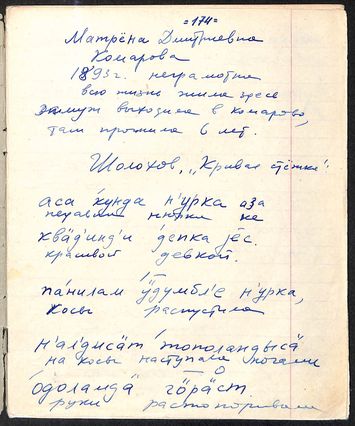 =174=
Матрёна Дмитриевна
Комарова
1893г. неграмотна
всю жизнь жила здесь
замуж выходила в Комарово,
там прожила 6 лет.
Шолохов, „Кривая стёжка".
аса хунда н'урка аза
нюрка не
квӓд'инд'и д'епка jéс.
красивой девкой.
па́нилам ӱдумбл'е н'урка,
косы распустила
н'ал'дисӓт тополандысӓ
на косы наступала ногами
о́доландӓ гӧрӓст.
руки растопоривали